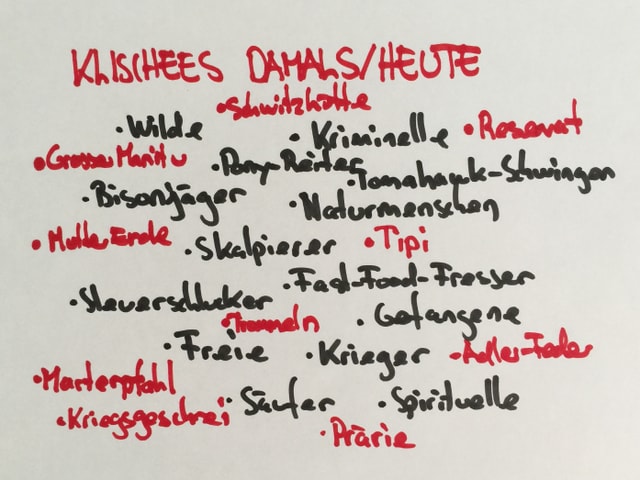 KLISCHEES DAMALS/HEUTE
• Schwitzhütte
• Wilde • Kriminelle • Reservat
• Grosser Manitu • Pony-Reiter • Tomahawk-Schwingen
• Bisonjäger • Naturmenschen
• Mutter Erde • Skalpierer • Tipi
• Fast-Food-Fresser
• Steuerschlucker
• Trommeln • Gefangene
• Freie • Krieger • Adler-Feder
• Marterpfahl
• Kriegsgeschrei • Säufer • Spirituelle
• Prärie